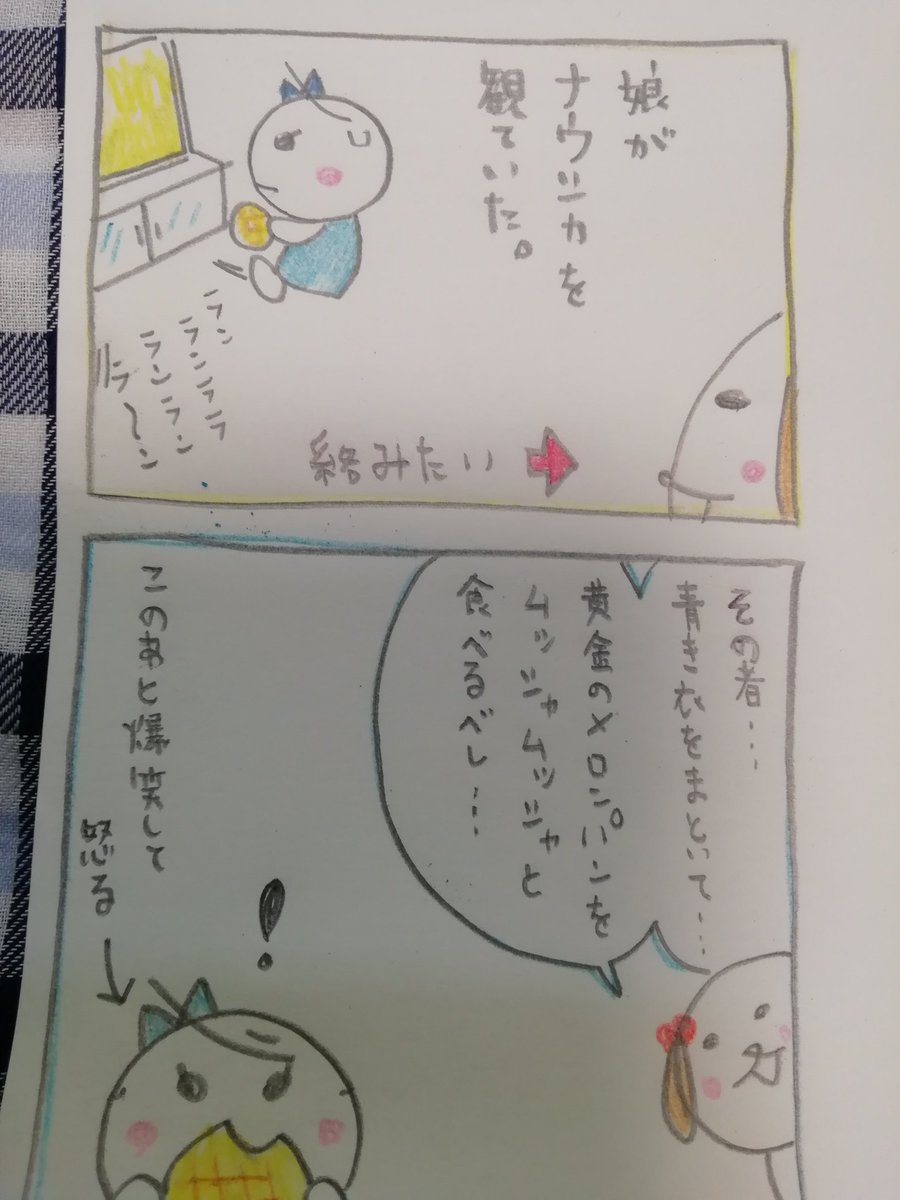 娘が
ナウシカを
観ていた。
ラン
ランランララ
ランラン
ルラ〜ン
絡みたい
その者…
青き衣をまといて…
黄金のメロンパンを
ムッシャムッシャと
食べるべし…
!
このあと爆笑して
怒る